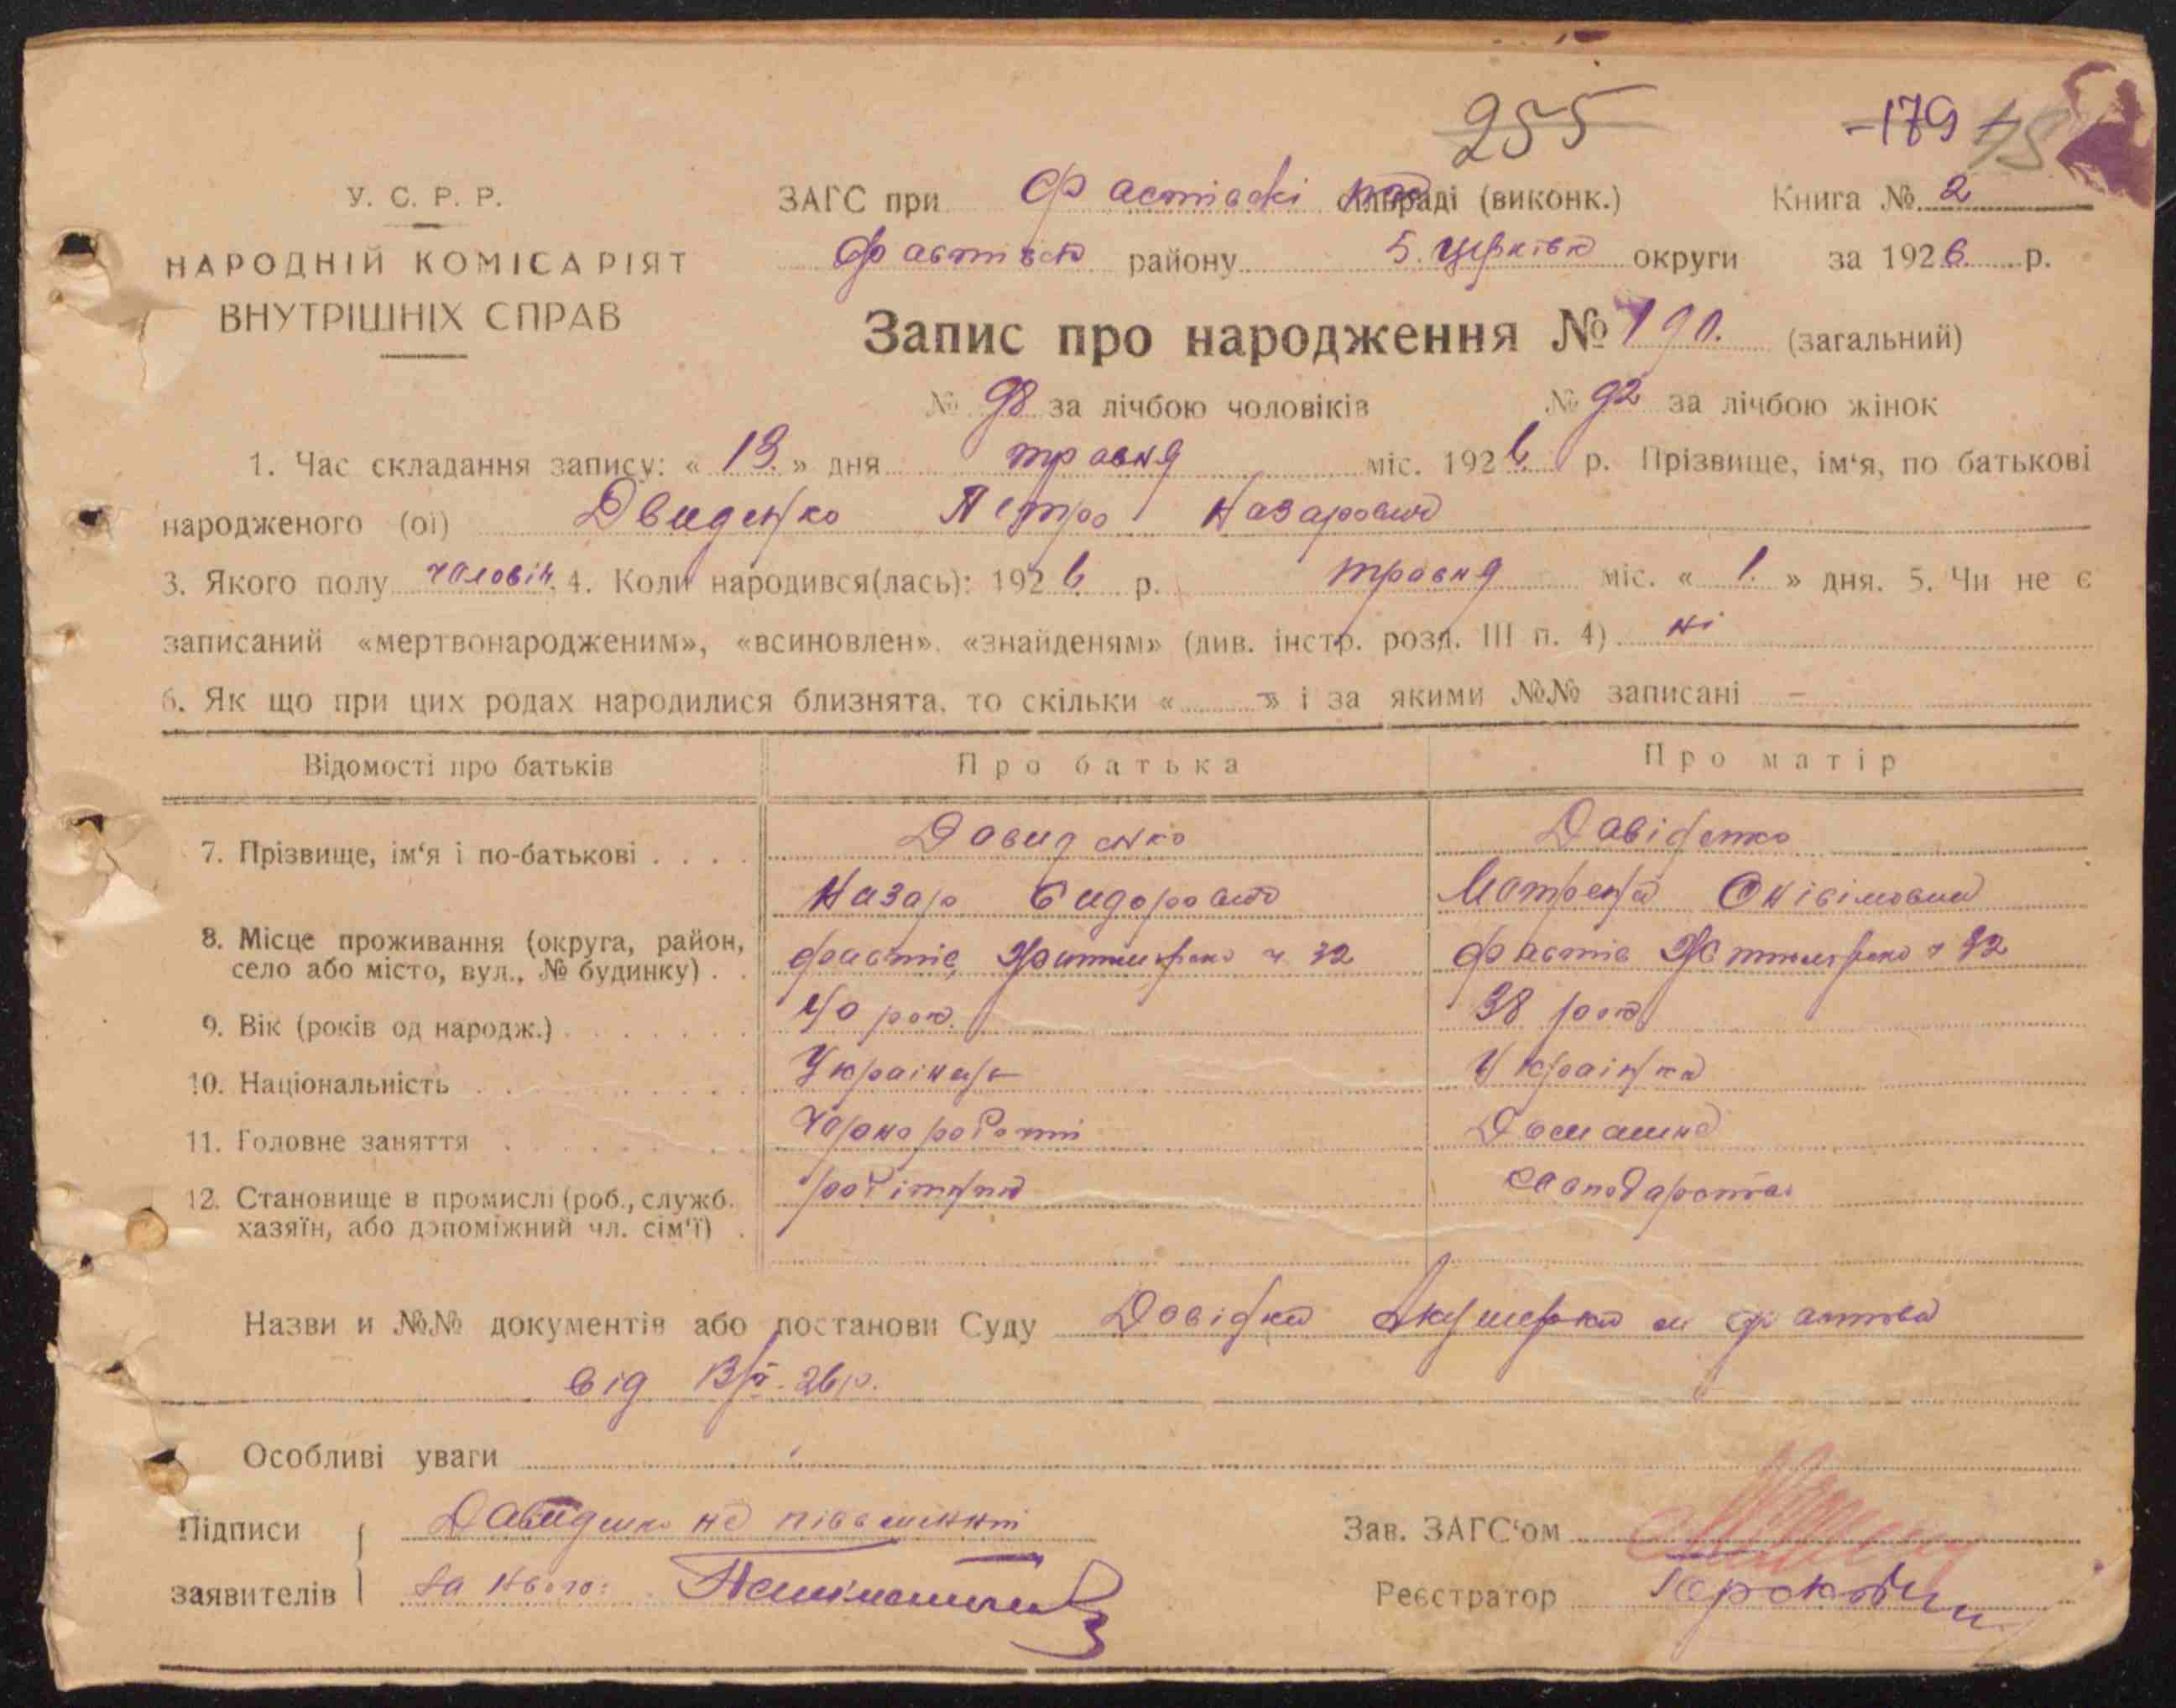 255
-179
У. С. Р. Р.
ЗАГС при Фастівскі сільраді (виконк.) Книга № 2
НАРОДНІЙ КОМІСАРІЯТ
Фастівск району Б. Церківк округи за 1926 р.
ВНУТРІШНІХ СПРАВ
Запис про народження № 190. (загальний)
№ 98 за лічбою чоловіків № 92 за лічбою жінок
1. Час складання запису: « 13. » дня травня міс. 1926 р. Прізвище, ім‘я, по батькові
народженого (ої) Двиденко Петро Назарович
3. Якого полу чоловіч. 4. Коли народився(лась): 1926 р. травня міс. « 1. » дня. 5. Чи не є
записаний «мертвонародженим», «всиновлен», «знайденям» (див. інстр. розд. III п. 4) ні
6. Як що при цих родах народилися близнята, то скільки « - » і за якими №№ записані -
Відомості про батьків Про батька Про матір
7. Прізвище, ім‘я і по-батькові . . . . Довиденко Давіденко
Назар Сидорович Мотрена
8. Місце проживання (округа, район,
село або місто, вул., № будинку) . . Фастів, ч 32 Фастів ч 32
9. Вік (років од народж.) 40 рок. 38 рок
10. Національність Українець Українка
11. Головне заняття Чорнороботні Домашнє
12. Становище в промислі (роб., служб.
хазяїн, або допоміжний чл. сім'ї) . робітник
Назви и №№ документів або постанови Суду Довідка Акушерки м Фастова
від 13/V-26р.
Особливі уваги
Підписи Давиденко не письменні
заявителів за нього:
Зав. ЗАГС‘ом
Реєстратор